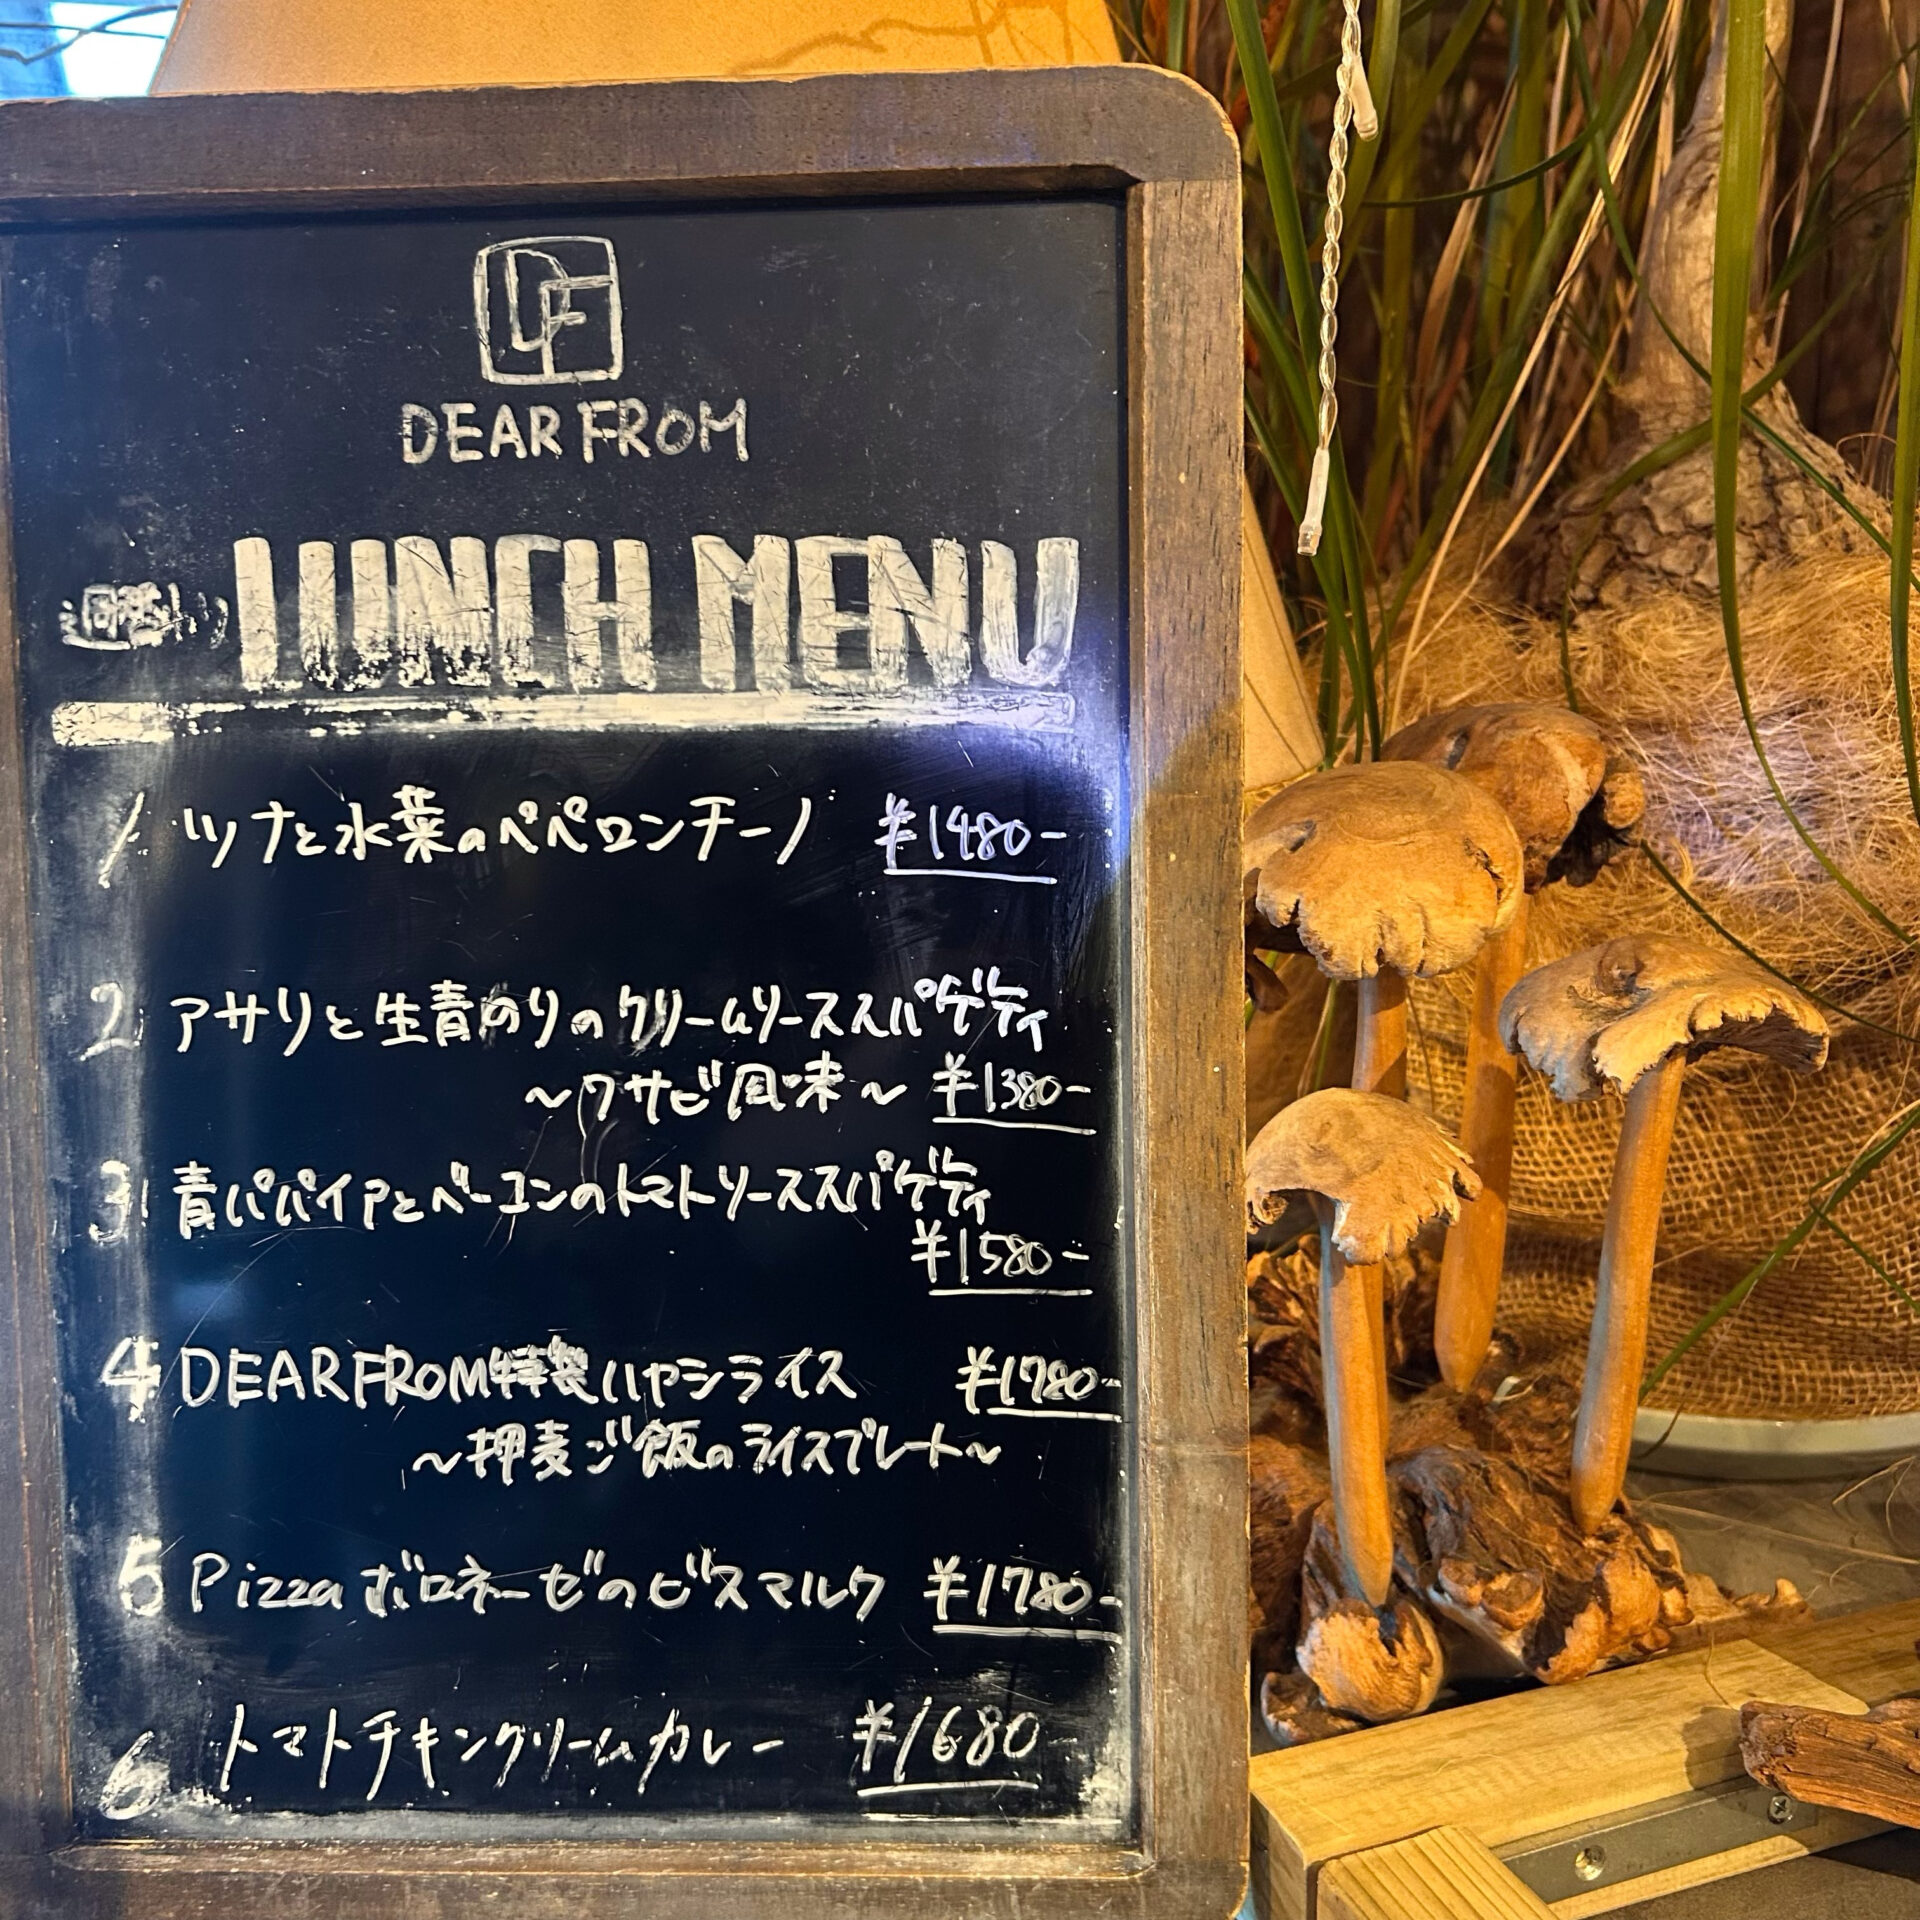 DF
DEAR FROM
LUNCH MENU
1 ツナと水菜のペペロンチーノ ¥1480-
2 アサリと生青のりのクリームソーススパゲティ
～ワサビ風味～ ¥1380-
3 青パパイアとベーコンのトマトソーススパゲティ
¥1580-
4 DEAR FROM特製ハヤシライス ¥1780-
～押麦ご飯のライスプレート～
5 Pizza ボロネーゼのビスマルク ¥1780-
6 トマトチキンクリームカレー ¥1680-